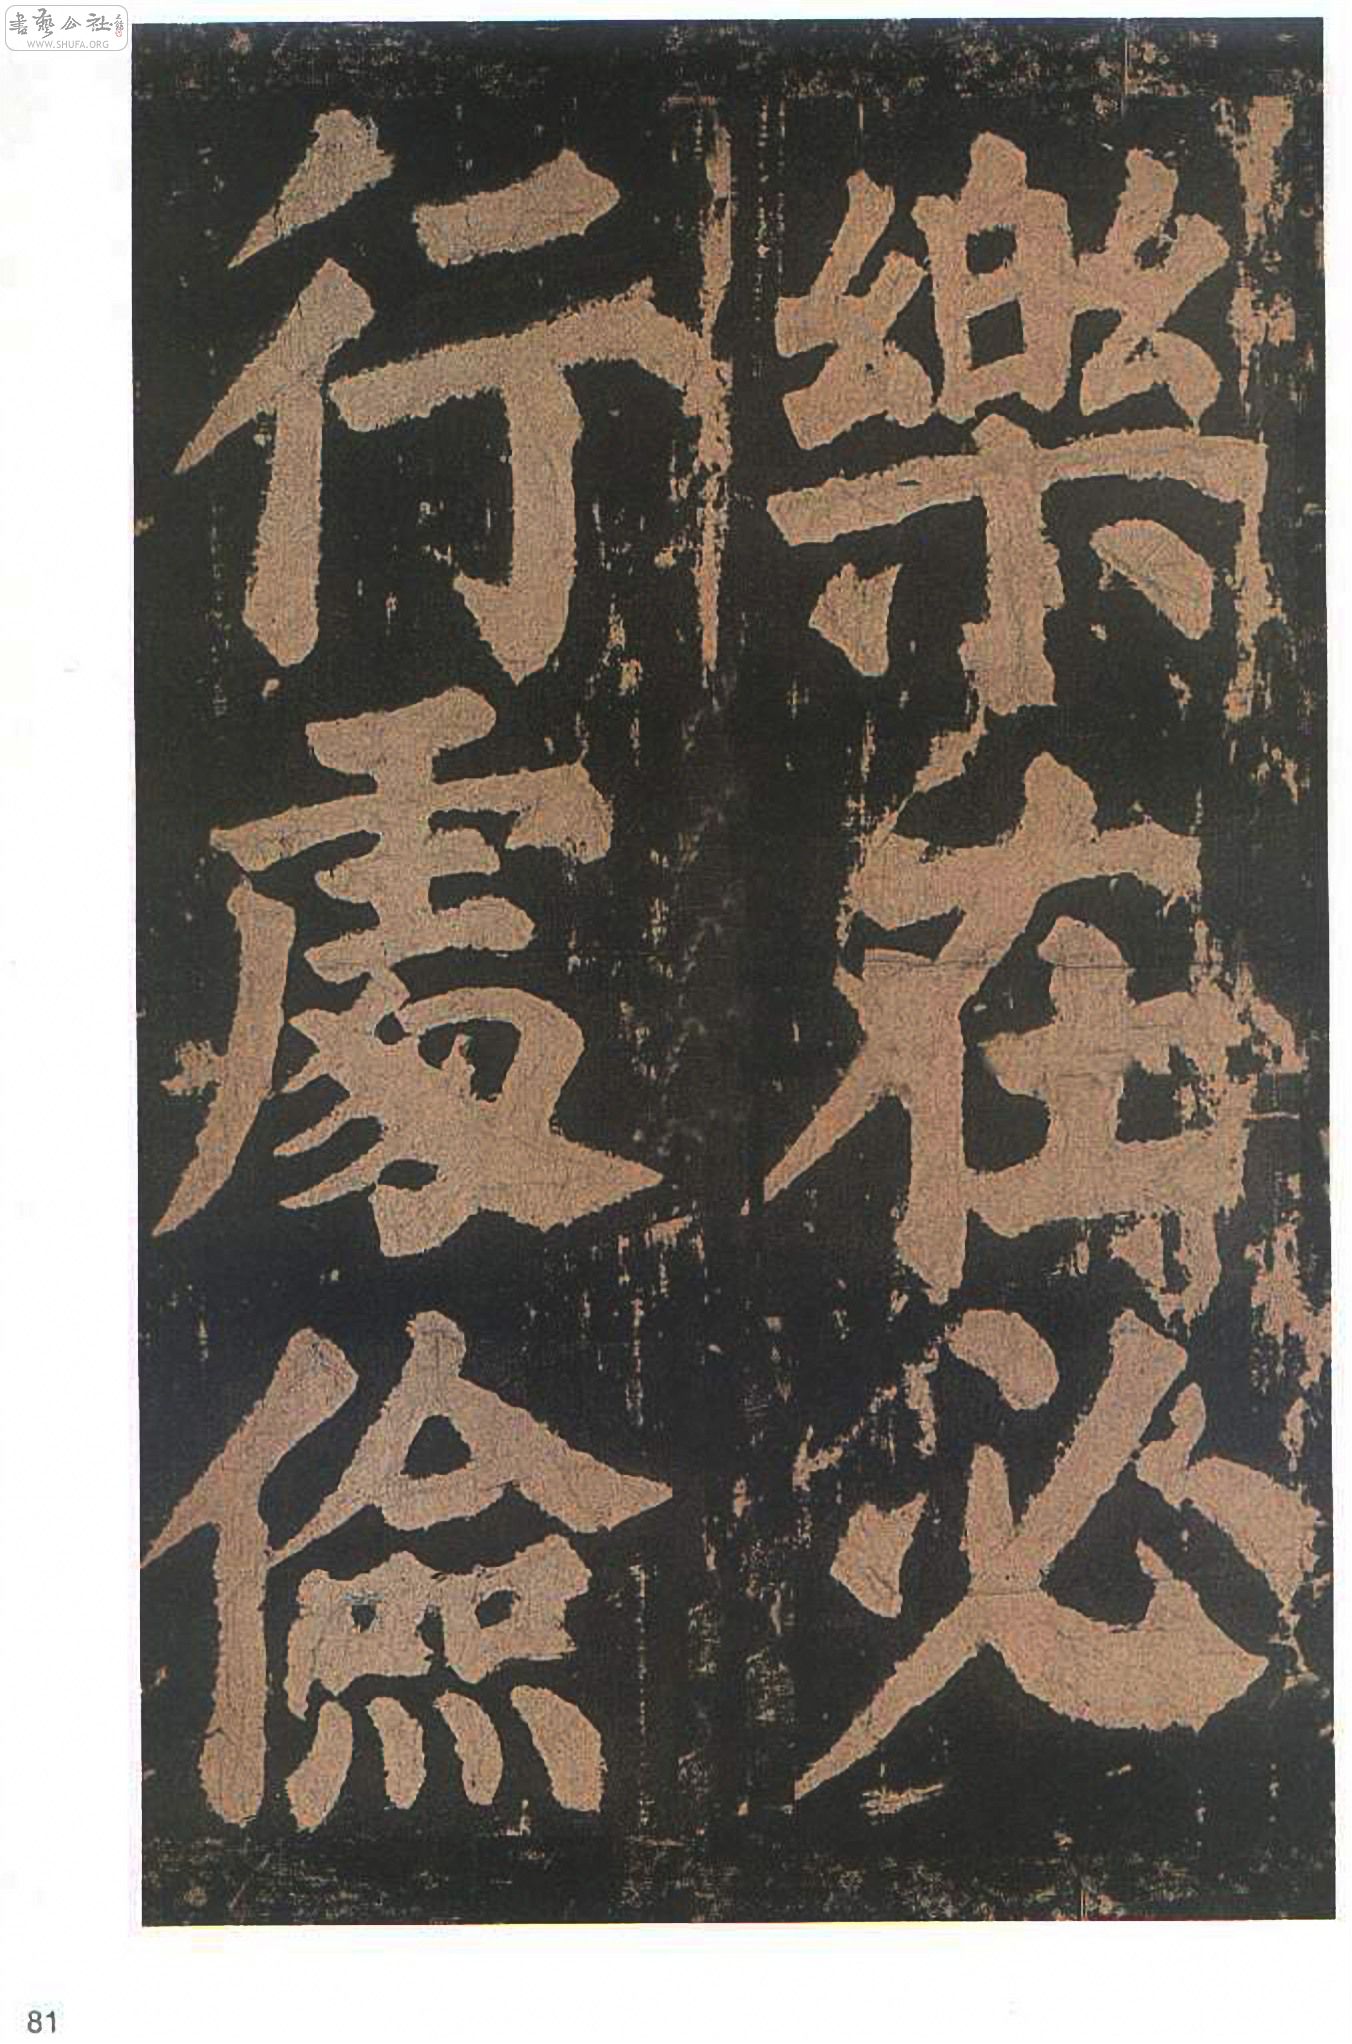 書藝公社
WWW.SHUFA.ORG
樂在必
行處儉
81